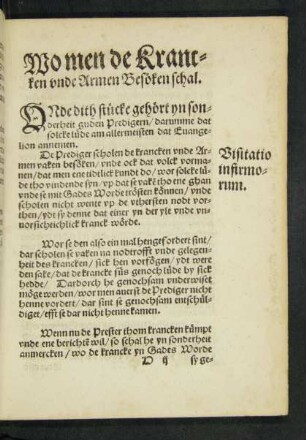 Wo men de Kranc-
ken vnde Armen Besöken schal.
VNde dith stücke gehört yn son-
derheit guden Predigern / darumme dat
solcke lüde am allermeisten dat Euange-
lion annemen.
De Prediger scholen de krancken vnde Ar-
men vaken besöken / vnde ock dat volck vorma-
nen / dat men ene tidtlick kundt do / wor solcke lü-
de tho vindende syn / vp dat se vakē tho ene ghan
vnde se mit Gades Worde trösten können / vnde
scholen nicht wente vp de vthersten nodt vor-
then / ydt sy denne dat einer yn der yle vnde vn-
vorsichtichlick kranck wörde.
Visitatio
infirmo-
rum.
Wor se den also ein mal hengefordert sint /
dar scholen se vaken na nodtrofft vnde gelegen-
heit des krancken / sick hen vorfögen / ydt were
den sake / dat de krancke süs genoch lüde by sick
hedde / Dardorch he genochsam vnderwiset
möge werden / wor men auerst de Prediger nicht
henne vordert / dar sint se genochsam entschül-
diget / efft se dar nicht henne kamen.
Wenn nu de Prester thom krancken kümpt
vnde ene berichtē wil / so schal he yn sonderheit
anmercken / wo de krancke yn Gades Worde
D ij
sy ge-